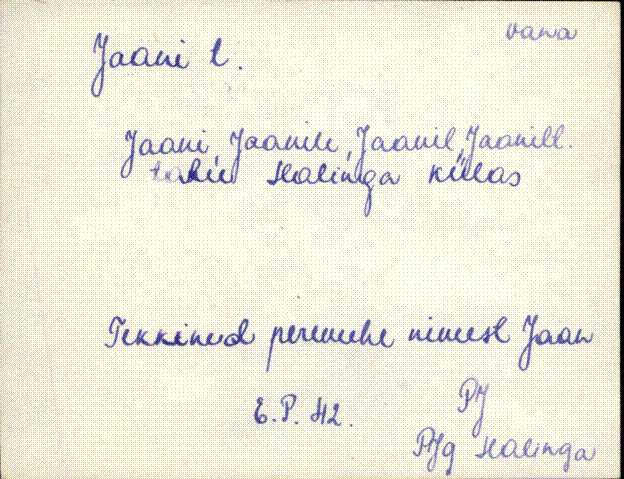 vana
Jaani t.
Jaani, Jaanile, Jaanil, Jaanilt.
talu Halinga külas
Tekkinud peremehe nimest Jaan
E.P. 42.
PJ
PJg Halinga